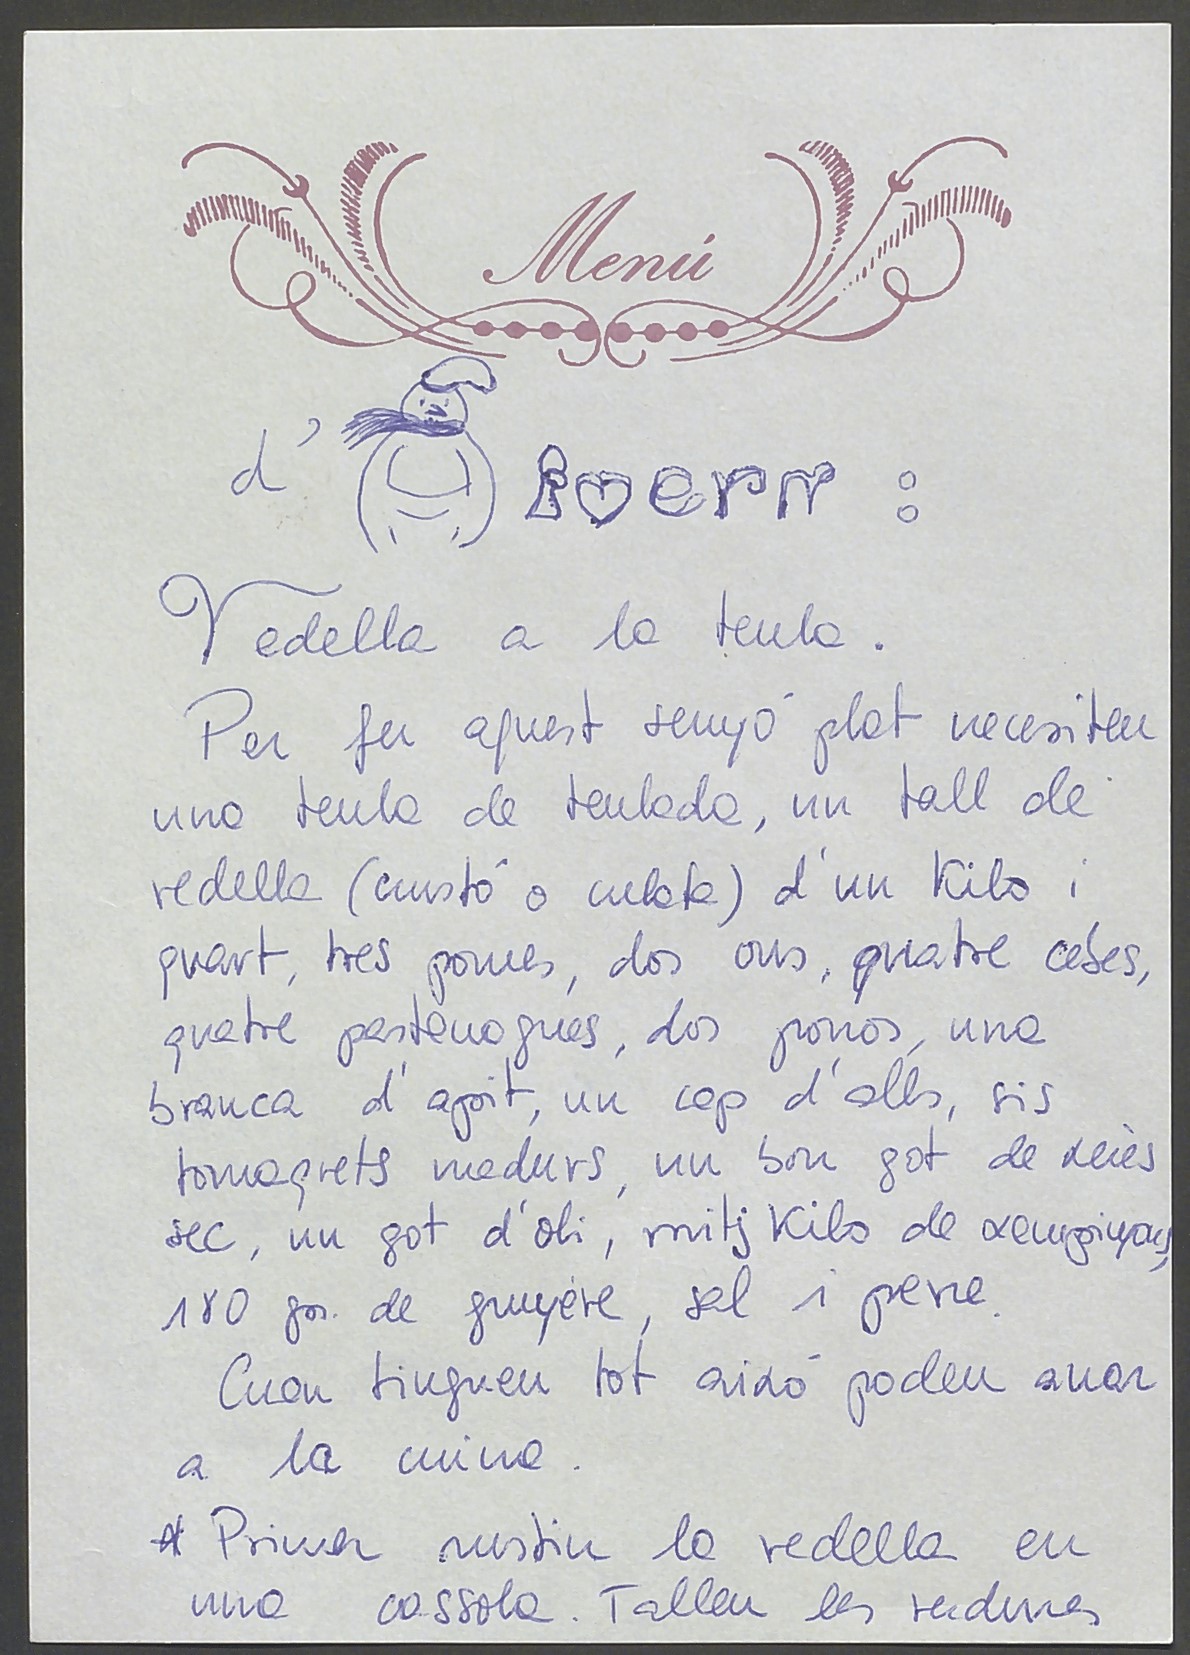 Menú
d' Ivern :
Vedella a la teula.
Per fer aquest senyó plat necesiteu
una teula de teulada, un tall de
vedella (crustó o culata) d'un Kilo i
quart, tres pomes, dos ous, quatre cebes,
quatre pastenagues, dos porros, una
branca d'apit, un cap d'alls, sis
tomaqrets madurs, un bon got de xeiès
sec, un got d'oli, mitj Kilo de xempinyons,
180 grs. de gruyére, sal i pevre.
Cuan tingueu tot aixó podeu anar
a la cuina.
* Primer rustiu la vedella en
una cassola. Talleu les verdures